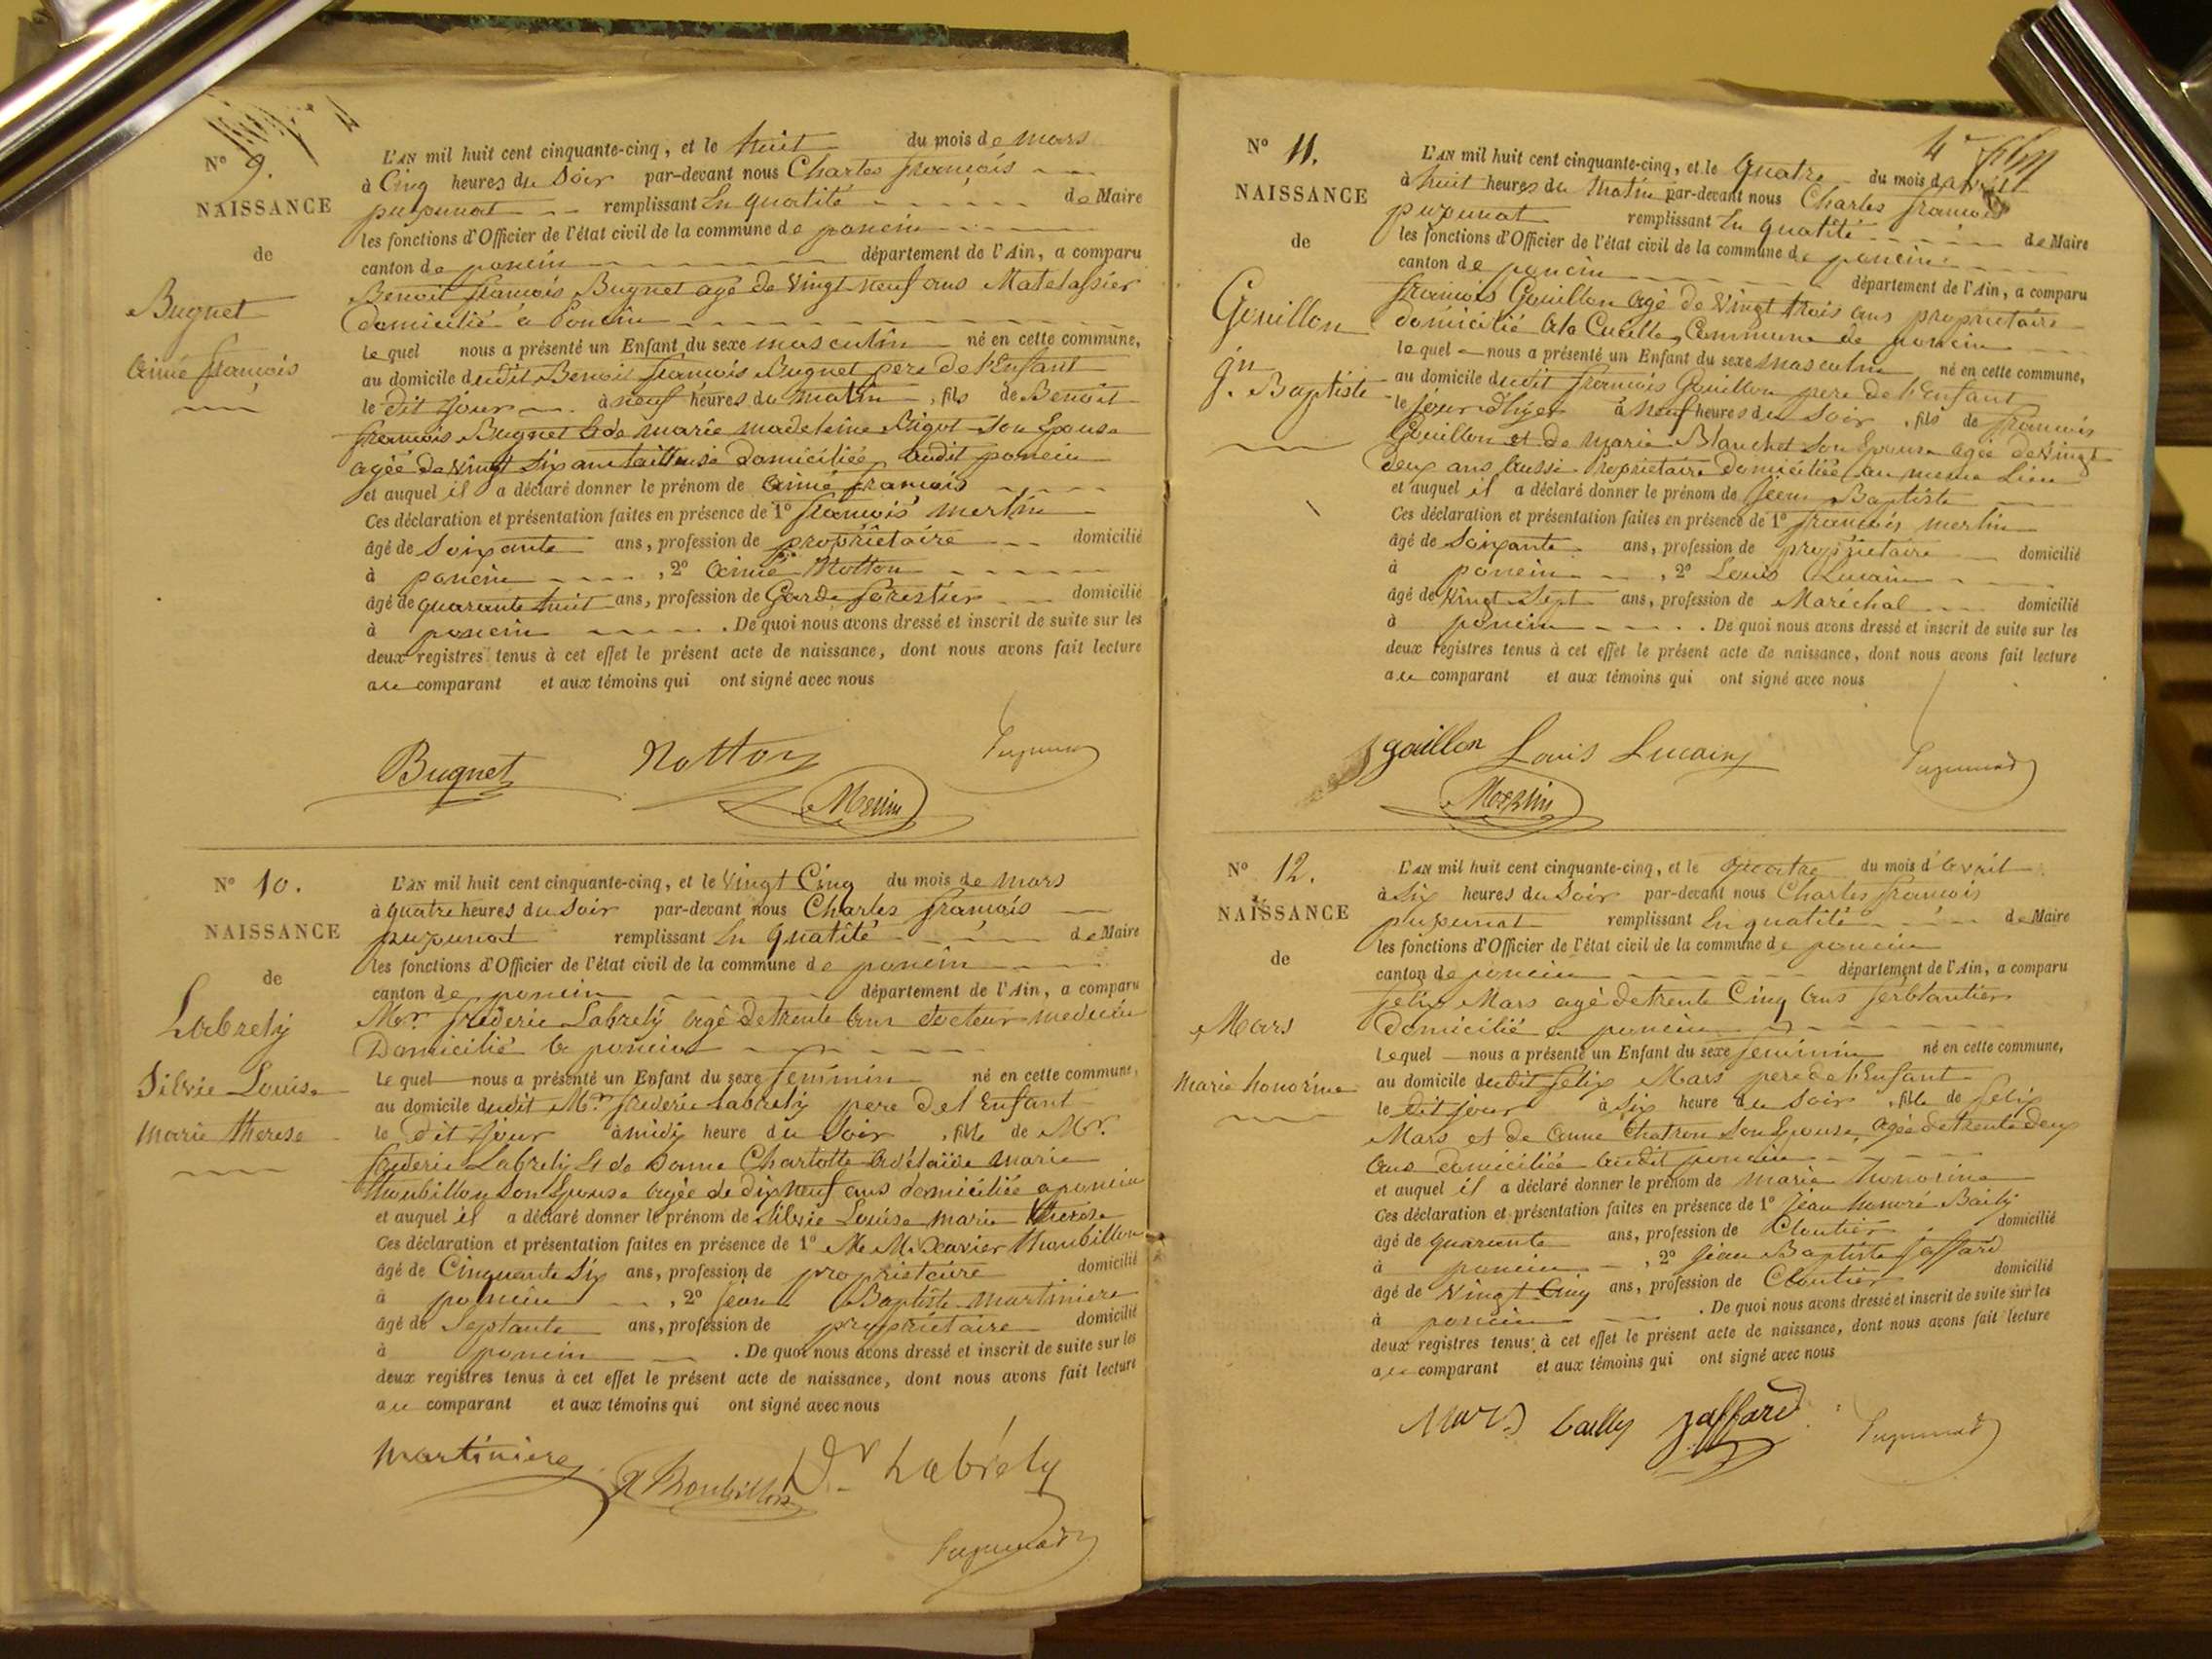 4
N° 9.
NAISSANCE
de
Bugnet
Aimé françois
L'AN mil huit cent cinquante-cinq, et le huit du mois de mars
à Cinq heures du Soir par-devant nous Charles françois
pupunat remplissant En qualité de Maire
les fonctions d'Officier de l'état civil de la commune de poncin
canton de poncin département de l'Ain, a comparu
Benoit françois Bugnet agé de Vingt neuf ans Matelassier
domicilié a Poncin
lequel nous a présenté un Enfant du sexe masculin né en cette commune,
au domicile dudit Benoit françois Bugnet pere de l'Enfant
le dit jour à neuf heures du matin, fils de Benoit
françois Bugnet & de marie madeleine Rigot Son Epouse
agée de vingt Six ans tailleuse domiciliée audit poncin
et auquel il a déclaré donner le prénom de Aimé françois
Ces déclaration et présentation faites en présence de 1° françois merlin
âgé de Soixante ans, profession de propriétaire domicilié
à poncin, 2° Aimé Notton
âgé de quarante huit ans, profession de Garde forestier domicilié
à poncin. De quoi nous avons dressé et inscrit de suite sur les
deux registres tenus à cet effet le présent acte de naissance, dont nous avons fait lecture
au comparant et aux témoins qui ont signé avec nous
Bugnet Notton Pupunat
Merlin
N° 10.
NAISSANCE
de
Labrely
Silvie Louise
marie therese
L'AN mil huit cent cinquante-cinq, et le Vingt Cinq du mois de mars
à quatre heures du Soir par-devant nous Charles françois
pupunat remplissant En qualité de Maire
les fonctions d'Officier de l'état civil de la commune de poncin
canton de poncin département de l'Ain, a comparu
Mr. frederic Labrely agé de trente ans docteur medecin
Domicilié a poncin
lequel nous a présenté un Enfant du sexe feminin né en cette commune,
au domicile dudit Mr. frederic Labrely pere de l'Enfant
le dit jour à midy heure du Soir, fille de Mr.
frederic Labrely & de Dame Charlotte Adelaïde marie
thoubillon son Epouse agée de dix neuf ans domiciliée a poncin
et auquel il a déclaré donner le prénom de Silvie Louise marie therese
Ces déclaration et présentation faites en présence de 1° Xavier thoubillon
âgé de Cinquante Six ans, profession de proprietaire domicilié
à poncin, 2° Jean Baptiste martiniere
âgé de Septante ans, profession de propriétaire domicilié
à poncin. De quoi nous avons dressé et inscrit de suite sur les
deux registres tenus à cet effet le présent acte de naissance, dont nous avons fait lecture
au comparant et aux témoins qui ont signé avec nous
Martiniere X Thoubillon Dr Labrely
Pupunat
4e
N° 11.
NAISSANCE
de
Gouillon
jn
j. Baptiste
L'AN mil huit cent cinquante-cinq, et le quatre du mois d'avril
à huit heures du Matin par-devant nous Charles françois
pupunat remplissant En qualité de Maire
les fonctions d'Officier de l'état civil de la commune de poncin
canton de poncin département de l'Ain, a comparu
françois Gouillon agé de Vingt trois ans proprietaire
domicilié a la Cueille, Commune de poncin
lequel nous a présenté un Enfant du sexe masculin né en cette commune,
au domicile dudit françois Gouillon pere de l'Enfant
le jour d'hyer à neuf heures du Soir, fils de françois
Gouillon et de marie Blanchet son Epouse agée de Vingt
deux ans aussi Proprietaire domiciliée au meme lieu
et auquel il a déclaré donner le prénom de Jean Baptiste
Ces déclaration et présentation faites en présence de 1° françois merlin
âgé de Soixante ans, profession de propriétaire domicilié
à poncin, 2° Louis Lucain
âgé de Vingt Sept ans, profession de Maréchal domicilié
à poncin. De quoi nous avons dressé et inscrit de suite sur les
deux registres tenus à cet effet le présent acte de naissance, dont nous avons fait lecture
au comparant et aux témoins qui ont signé avec nous
gouillon Louis Lucain Pupunat
Merlin
N° 12.
NAISSANCE
de
Mars
marie honorine
L'AN mil huit cent cinquante-cinq, et le quatre du mois d'avril
à Six heures du Soir par-devant nous Charles françois
pupunat remplissant En qualité de Maire
les fonctions d'Officier de l'état civil de la commune de poncin
canton de poncin département de l'Ain, a comparu
felix Mars agé de trente Cinq ans ferblantier
domicilié a poncin
lequel nous a présenté un Enfant du sexe feminin né en cette commune,
au domicile dudit felix Mars pere de l'Enfant
le dit jour à Six heure du Soir, fille de felix
Mars et de anne Chatron son Epouse, agée de trente deux
ans domiciliée audit poncin
et auquel il a déclaré donner le prénom de marie honorine
Ces déclaration et présentation faites en présence de 1° Jean honoré Bailly
âgé de quarante ans, profession de Cloutier domicilié
à poncin, 2° Jean Baptiste Jaffard
âgé de Vingt Cinq ans, profession de Cloutier domicilié
à poncin. De quoi nous avons dressé et inscrit de suite sur les
deux registres tenus à cet effet le présent acte de naissance, dont nous avons fait lecture
au comparant et aux témoins qui ont signé avec nous
Mars bailly jaffard Pupunat